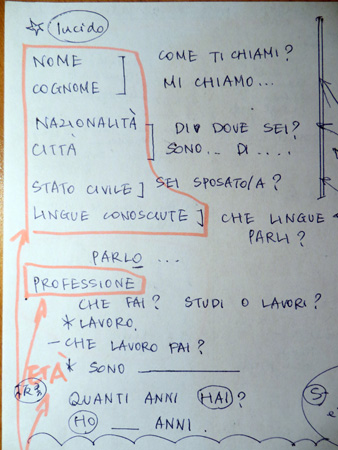 ☆ lucido
NOME COME TI CHIAMI?
COGNOME MI CHIAMO...
NAZIONALITÀ DI DOVE SEI?
CITTÀ SONO... DI....
STATO CIVILE] SEI SPOSATO/A?
LINGUE CONOSCIUTE] CHE LINGUE
PARLI?
PARLO ...
PROFESSIONE
CHE FAI? STUDI O LAVORI?
* LAVORO.
- CHE LAVORO FAI?
* SONO ___________
ETÀ
QUANTI ANNI HAI?
HO ___ ANNI.
S